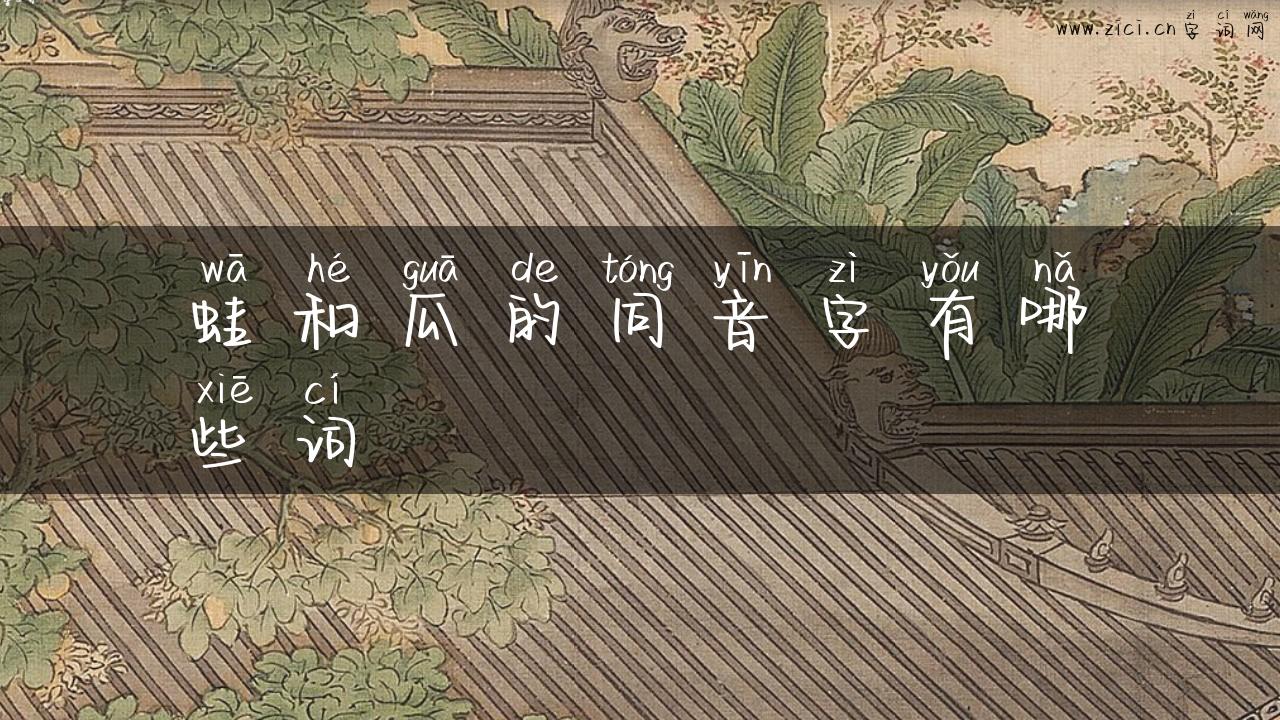 zì cí wǎng
www.zici.cn 字 词 网
wā hé guā de tóng yīn zì yǒu nǎ
蛙 和 瓜 的 同 音 字 有 哪
xiē cí
些 词